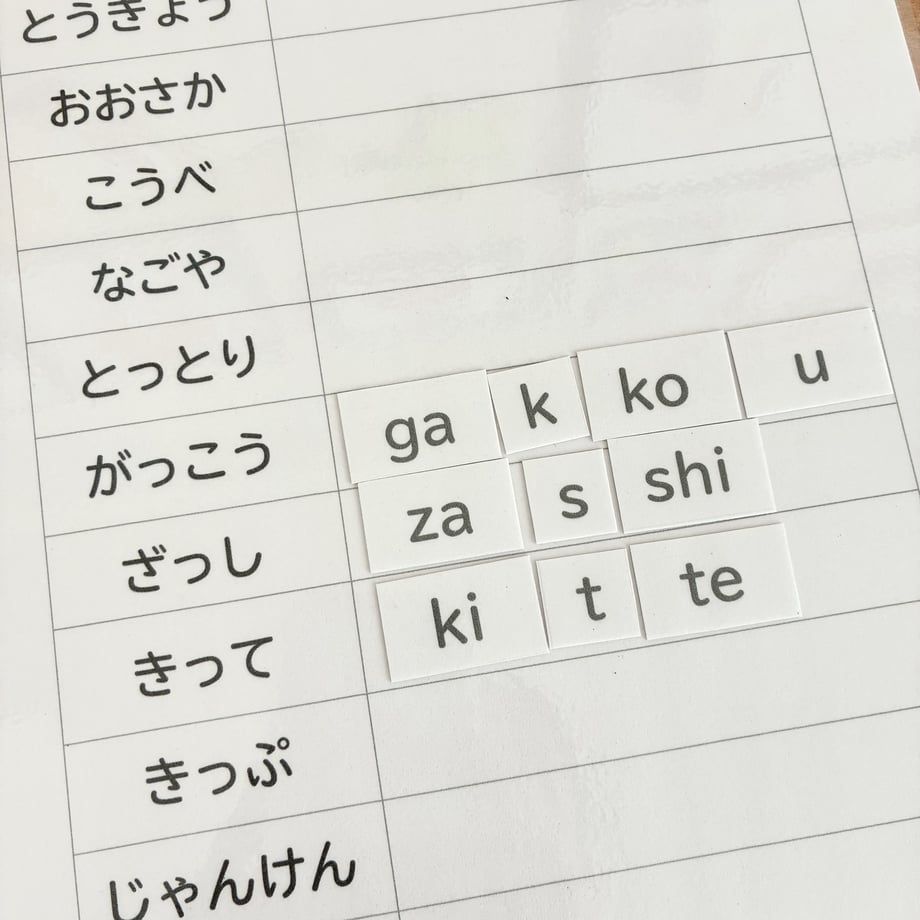 とうきょう
おおさか
こうべ
なごや
とっとり
がっこう ga k ko u
ざっし za s shi
きって ki t te
きっぷ
じゃんけん